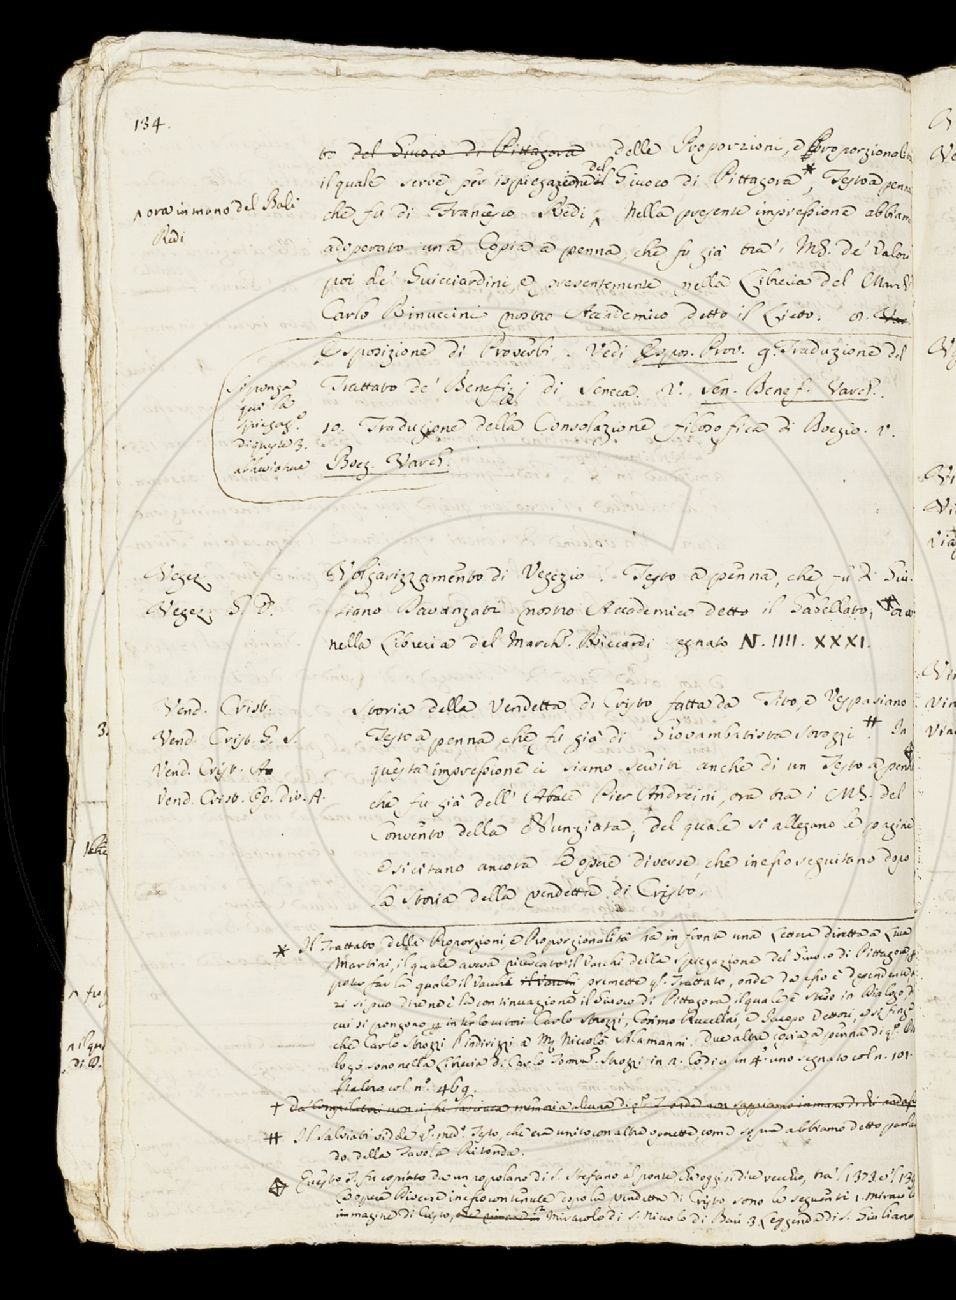 134.
to del Giuoco di Pittagora delle Proporzioni, e Proporzionalità
il quale serve per ispiegazione del Giuoco di Pittagora*, Testo a penna
che fu di Francesco Redi ^ Nella presente impressione abbiam
^ ora in mano del Balì
Redi
adoperato una Copia a penna, che fu già tra i MS. de' Valori
poi de' Guicciardini, e presentemente nella Libreria del March.
Carlo Rinuccini nostro Accademico detto il Lieto. 8.
Esposizione di Proverbi. Vedi Espos. Prov. 9. Traduzione del
Trattato de' Benefizj di Seneca. V. Sen. Benef. Varch.
10. Traduzione della Consolazione filosofica di Boezio. V.
Boez. Varch.
Si ponga
qui la
spiegaz.e
di queste 3.
abbreviature
Vegez.
Vegez. G. D.
Volgarizzamento di Vegezio. Testo a penna, che fu di Giu-
liano Davanzati nostro Accademico detto il Sabellato,
nella Libreria del March. Riccardi segnato N. IIII. XXXI.
Vend. Crist.
Vend. Crist. G. S.
Vend. Crist. A.
Vend. Crist. Op. Div. A.
Storia della Vendetta di Cristo fatta da Tito, e Vespasiano
Testo a penna che fu già di Giovambatista Strozzi # In
questa impressione ci siamo serviti anche di un Testo a penna
che fu già dell' Abate Pier Andreini, ora tra i MS. del
Convento della Nunziata, del quale si allegano le pagine
e si citano ancora le opere diverse che in esso seguitano dopo
la Storia della vendetta di Cristo.
* Il Trattato delle Proporzioni, e Proporzionalità ha in fronte una Lettera diretta a Luca
Martini, il quale aveva ricercato il Varchi della spiegazione del Giuoco di Pittagora,
poter far la quale il Varchi premette q.º Trattato, onde da esso è dependente,
si può dire ne è la continuazione il Giuoco di Pittagora, il quale è steso in Dialogo,
cui si pongono interlocutori Carlo Strozzi, Cosimo Rucellai, e Jacopo Vettori,
che Carlo Strozzi l'indirizzi a M. Niccolò Alamanni. Due altre copie a penna di q.º Dia
logo sono nella Libreria di Carlo Tomm. Strozzi in 2. Codici in 4. uno segnato col n. 101.
l'altro col n. 469.
# Il Salviati vidde q.º med.º Testo, che era unito con altre operette, come sopra abbiamo detto parlan
do della Tavola Ritonda.
Questo T. fu copiato da un popolano di S. Stefano al ponte, ch'oggi si dice vecchio, tra'l 1373. e'l
Le opere diverse in esso contenute dopo la vendetta di Cristo sono le seguenti 1. miracolo
immagine di Cristo, Miracolo di S. Niccolò di Bari 3. Leggenda di S. Giuliano